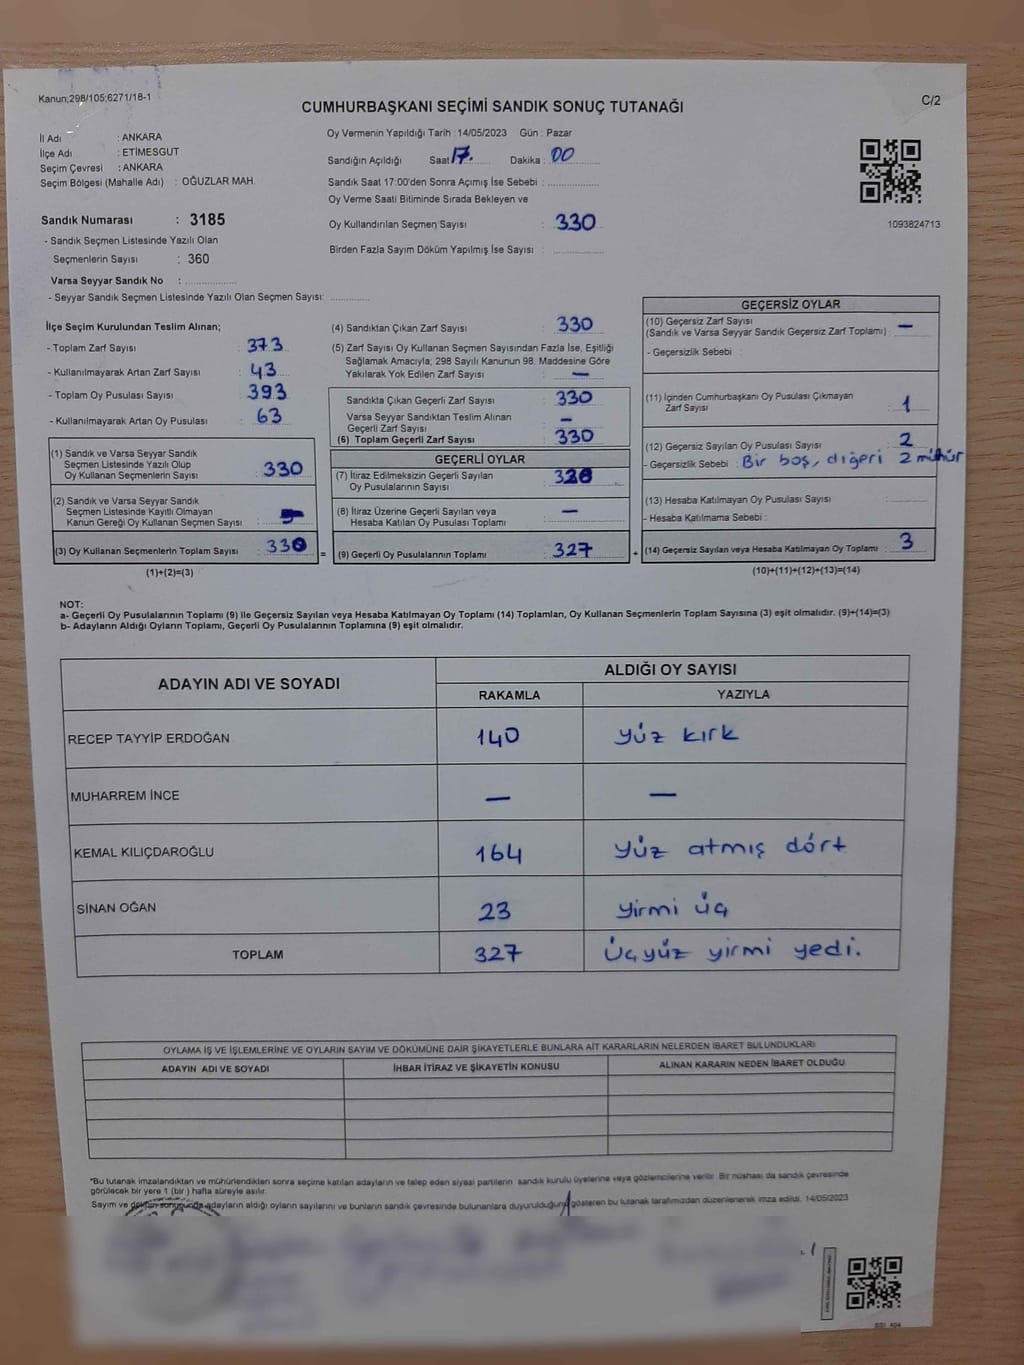 Kanun;298/105;6271/18-1
CUMHURBAŞKANI SEÇİMİ SANDIK SONUÇ TUTANAĞI
C/2
İl Adı : ANKARA
İlçe Adı : ETİMESGUT
Seçim Çevresi : ANKARA
Seçim Bölgesi (Mahalle Adı) : OĞUZLAR MAH.
Oy Vermenin Yapıldığı Tarih : 14/05/2023 Gün : Pazar
Sandığın Açıldığı Saat 17. Dakika : 00
Sandık Saat 17:00'den Sonra Açımış İse Sebebi :
Oy Verme Saati Bitiminde Sırada Bekleyen ve
Oy Kullandırılan Seçmen Sayısı : 330
Birden Fazla Sayım Döküm Yapılmış İse Sayısı :
1093824713
Sandık Numarası : 3185
- Sandık Seçmen Listesinde Yazılı Olan
Seçmenlerin Sayısı : 360
Varsa Seyyar Sandık No :
- Seyyar Sandık Seçmen Listesinde Yazılı Olan Seçmen Sayısı:
İlçe Seçim Kurulundan Teslim Alınan;
- Toplam Zarf Sayısı : 373
- Kullanılmayarak Artan Zarf Sayısı : 43
- Toplam Oy Pusulası Sayısı : 393
- Kullanılmayarak Artan Oy Pusulası : 63
(1) Sandık ve Varsa Seyyar Sandık
Seçmen Listesinde Yazılı Olup
Oy Kullanan Seçmenlerin Sayısı : 330
(2) Sandık ve Varsa Seyyar Sandık
Seçmen Listesinde Kayıtlı Olmayan
Kanun Gereği Oy Kullanan Seçmen Sayısı :
(3) Oy Kullanan Seçmenlerin Toplam Sayısı : 330 =
(1)+(2)=(3)
(4) Sandıktan Çıkan Zarf Sayısı : 330
(5) Zarf Sayısı Oy Kullanan Seçmen Sayısından Fazla İse, Eşitliği
Sağlamak Amacıyla; 298 Sayılı Kanunun 98. Maddesine Göre
Yakılarak Yok Edilen Zarf Sayısı : —
Sandıkta Çıkan Geçerli Zarf Sayısı : 330
Varsa Seyyar Sandıktan Teslim Alınan
Geçerli Zarf Sayısı : —
(6) Toplam Geçerli Zarf Sayısı : 330
GEÇERLİ OYLAR
(7) İtiraz Edilmeksizin Geçerli Sayılan
Oy Pusulalarının Sayısı :
(8) İtiraz Üzerine Geçerli Sayılan veya
Hesaba Katılan Oy Pusulası Toplamı : —
(9) Geçerli Oy Pusulalarının Toplamı : 327 +
GEÇERSİZ OYLAR
(10) Geçersiz Zarf Sayısı
(Sandık ve Varsa Seyyar Sandık Geçersiz Zarf Toplamı) : —
- Geçersizlik Sebebi :
(11) İçinden Cumhurbaşkanı Oy Pusulası Çıkmayan
Zarf Sayısı : 1
(12) Geçersiz Sayılan Oy Pusulası Sayısı : 2
- Geçersizlik Sebebi : Bir boş, diğeri 2 mühür
(13) Hesaba Katılmayan Oy Pusulası Sayısı :
- Hesaba Katılmama Sebebi :
(14) Geçersiz Sayılan veya Hesaba Katılmayan Oy Toplamı : 3
(10)+(11)+(12)+(13)=(14)
NOT:
a- Geçerli Oy Pusulalarının Toplamı (9) ile Geçersiz Sayılan veya Hesaba Katılmayan Oy Toplamı (14) Toplamları, Oy Kullanan Seçmenlerin Toplam Sayısına (3) eşit olmalıdır. (9)+(14)=(3)
b- Adayların Aldığı Oyların Toplamı, Geçerli Oy Pusulalarının Toplamına (9) eşit olmalıdır.
ADAYIN ADI VE SOYADI
ALDIĞI OY SAYISI
RAKAMLA YAZIYLA
RECEP TAYYİP ERDOĞAN 140 yüz kırk
MUHARREM İNCE — —
KEMAL KILIÇDAROĞLU 164 yüz atmış dört
SİNAN OĞAN 23 yirmi üç
TOPLAM 327 Üçyüz yirmi yedi.
OYLAMA İŞ VE İŞLEMLERİNE VE OYLARIN SAYIM VE DÖKÜMÜNE DAİR ŞİKAYETLERLE BUNLARA AİT KARARLARIN NELERDEN İBARET BULUNDUKLARI
ADAYIN ADI VE SOYADI İHBAR İTİRAZ VE ŞİKAYETİN KONUSU ALINAN KARARIN NEDEN İBARET OLDUĞU
*Bu tutanak imzalandıktan ve mühürlendikten sonra seçime katılan adayların ve talep eden siyasi partilerin sandık kurulu üyelerine veya gözlemcilerine verilir. Bir nüshası da sandık çevresinde
görülecek bir yere 1 (bir) hafta süreyle asılır.
Sayım ve döküm sonucunda adayların aldığı oyların sayılarını ve bunların sandık çevresinde bulunanlara duyurulduğunu gösteren bu tutanak tarafımızdan düzenlenerek imza edildi. 14/05/2023